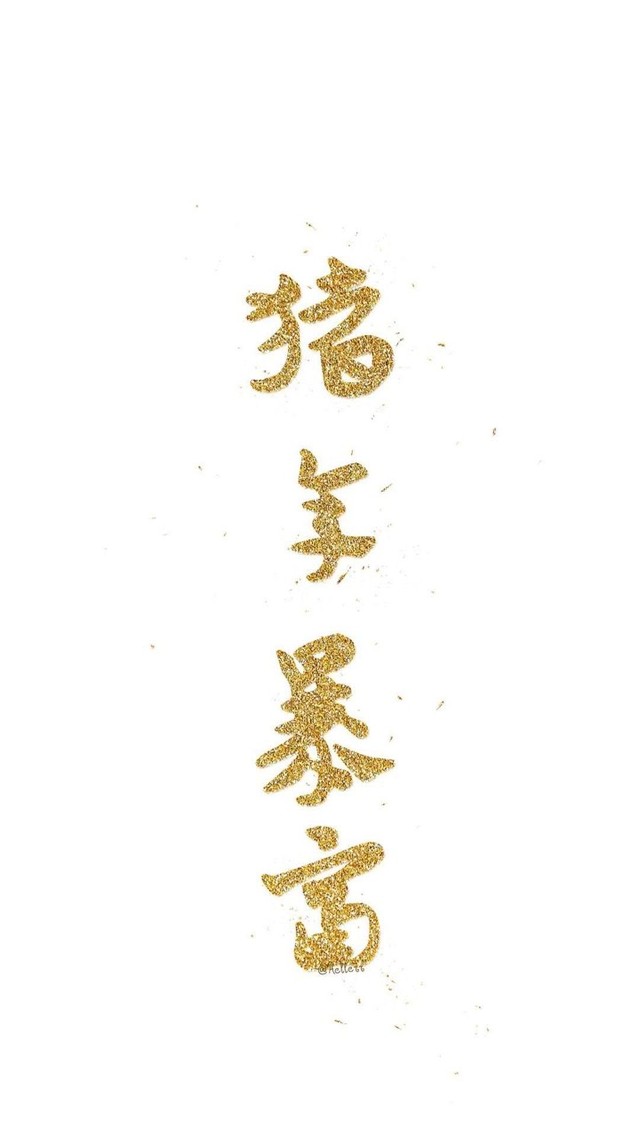 猪年暴富
@Aellett